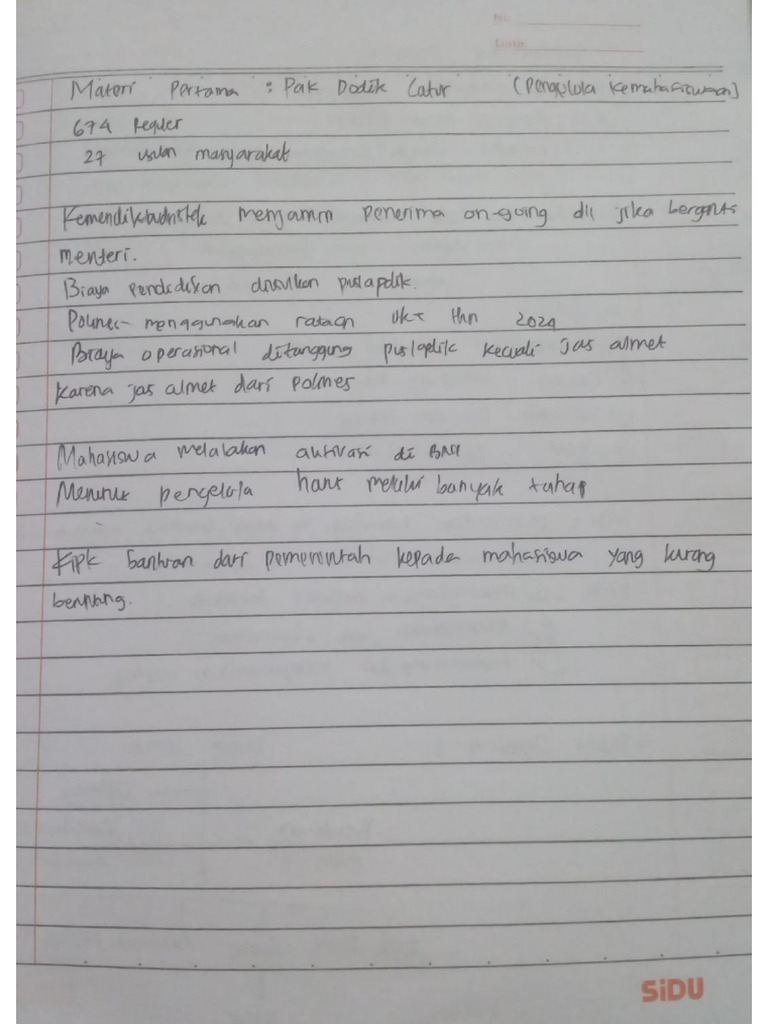 No.
Date
Materi Pertama : Pak Dodik Catur (Pengelola Kemahasiswaan)
674 Reguler
27 usulan masyarakat
Kemendikbudristek menjamin penerima on-going dll jika berganti
menteri.
Biaya pendidikan diusulkan puslapdik.
Polines menggunakan rataan UKT thn 2024
Biaya operasional ditanggung puslapdik kecuali jas almet
karena jas almet dari Polines
Mahasiswa melakukan aktivasi di BNI
Menurut pengelola harus melalui banyak tahap
KIPK bantuan dari pemerintah kepada mahasiswa yang kurang
beruntung.
SiDU